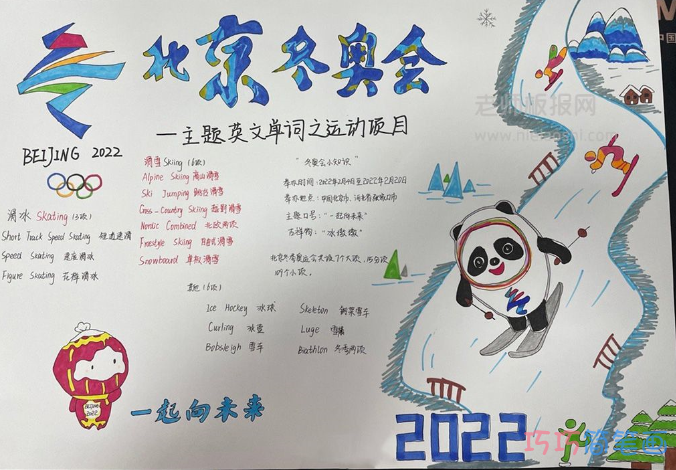 北京冬奥会
—主题英文单词之运动项目
BEIJING 2022
滑冰 Skating (3项)
Short Track Speed Skating 短道速滑
Speed Skating 速度滑冰
Figure Skating 花样滑冰
滑雪 Skiing (6项)
Alpine Skiing 高山滑雪
Ski Jumping 跳台滑雪
Cross-Country Skiing 越野滑雪
Nordic Combined 北欧两项
Freestyle Skiing 自由式滑雪
Snowboard 单板滑雪
"冬奥会小知识"
举办时间:2022年2月4日至2022年2月20日
举办地点:中国北京市、河北省张家口市
主题口号:"一起向未来"
吉祥物:"冰墩墩"
北京冬季奥运会共设7个大项,15分项
109个小项,
(6项)
Ice Hockey 冰球
Curling 冰壶
Bobsleigh 雪车
Skeleton 钢架雪车
Luge 雪橇
Biathlon 冬季两项
BEIJING
2022
一起向未来
2022
老师板报网
巧巧简笔画
中国